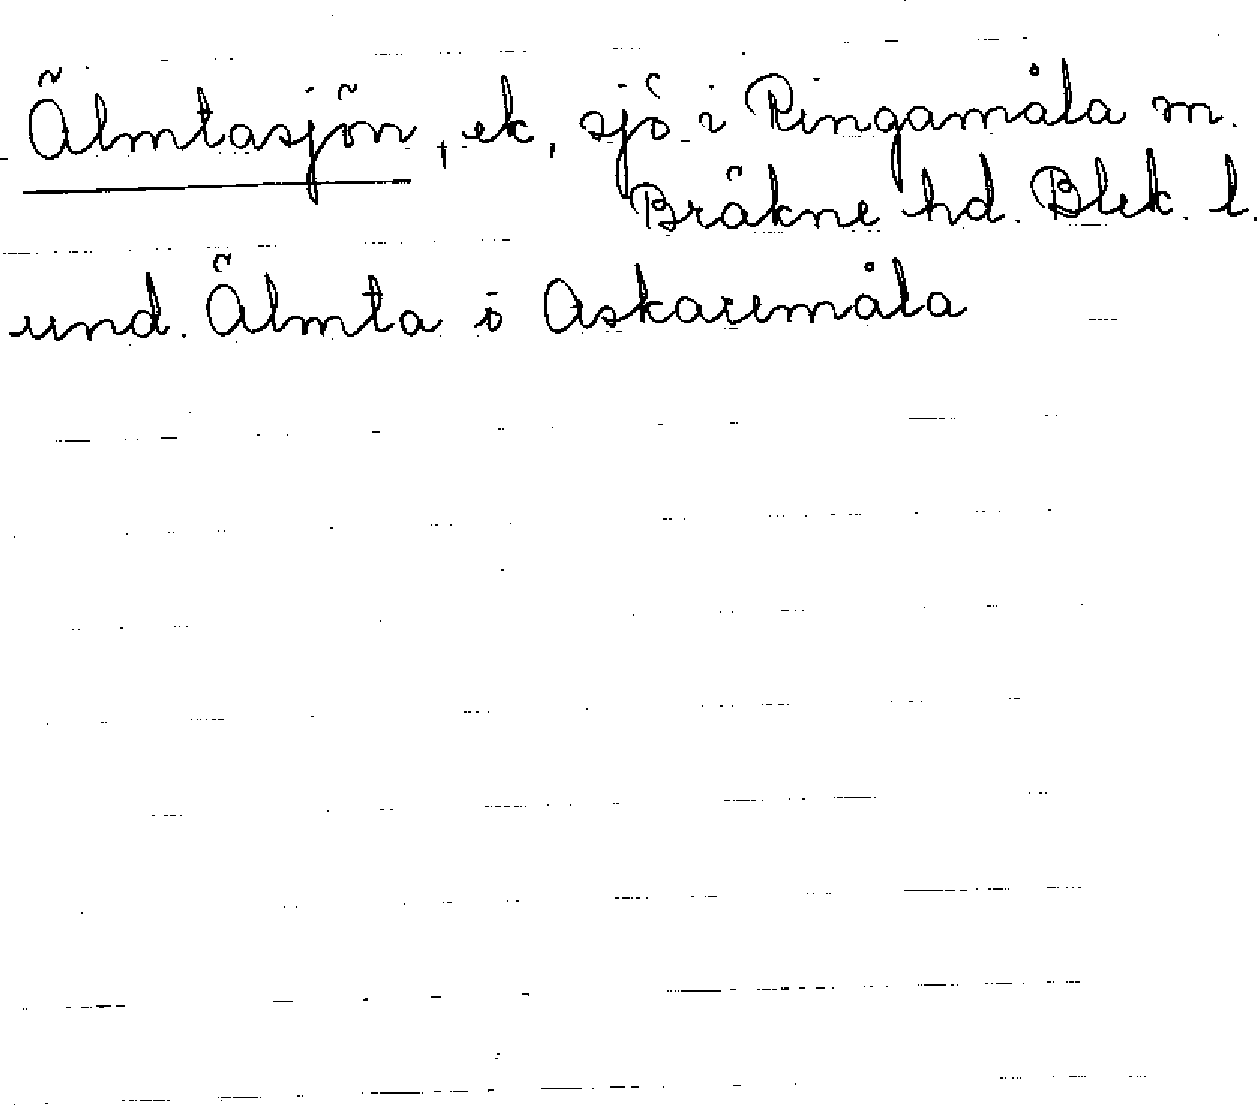 Älmtasjön, ek, sjö i Ringamåla m.
Bräkne hd. Blek. l.
und. Älmta i Askaremåla